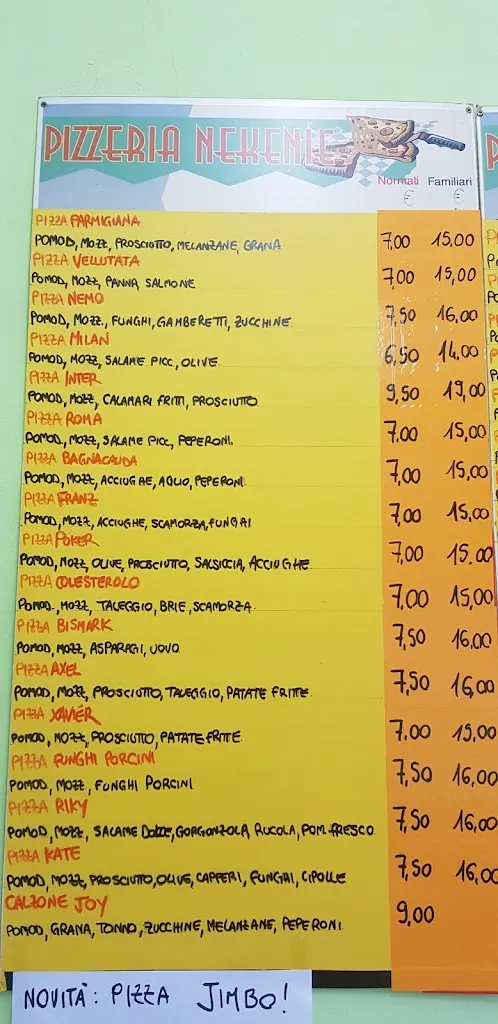 PIZZERIA NEKENIE
Normali Familiari
€ €
PIZZA PARMIGIANA
POMOD, MOZZ, PROSCIUTTO, MELANZANE, GRANA 7,00 15,00
PIZZA VELLUTATA
POMOD, MOZZ, PANNA, SALMONE 7,00 15,00
PIZZA NEMO
POMOD, MOZZ., FUNGHI, GAMBERETTI, ZUCCHINE 7,50 16,00
PIZZA MILAN
POMOD, MOZZ, SALAME PICC, OLIVE 6,50 14,00
PIZZA INTER
POMOD, MOZZ, CALAMARI FRITTI, PROSCIUTTO 9,50 19,00
PIZZA ROMA
POMOD, MOZZ, SALAME PICC, PEPERONI. 7,00 15,00
PIZZA BAGNACAUDA
POMOD, MOZZ, ACCIUGHE, AGLIO, PEPERONI 7,00 15,00
PIZZA FRANZ
POMOD, MOZZ, ACCIUGHE, SCAMORZA, FUNGHI 7,00 15,00
PIZZA POKER
POMOD, MOZZ, OLIVE, PROSCIUTTO, SALSICCIA, ACCIUGHE 7,00 15.00
PIZZA COLESTEROLO
POMOD, MOZZ, TALEGGIO, BRIE, SCAMORZA 7,00 15,00
PIZZA BISMARK
POMOD, MOZZ, ASPARAGI, UOVO 7,50 16,00
PIZZA AXEL
POMOD, MOZZ, PROSCIUTTO, TALEGGIO, PATATE FRITTE 7,50 16,00
PIZZA XAVIÉR
POMOD, MOZZ, PROSCIUTTO, PATATE FRITTE 7,00 15,00
PIZZA FUNGHI PORCINI
POMOD, MOZZ, FUNGHI PORCINI 7,50 16,00
PIZZA RIKY
POMOD, MOZZ, SALAME DOLCE, GORGONZOLA, RUCOLA, POM. FRESCO 7,50 16,00
PIZZA KATE
POMOD, MOZZ, PROSCIUTTO, OLIVE, CAPPERI, FUNGHI, CIPOLLE 7,50 16,00
CALZONE JOY
POMOD, GRANA, TONNO, ZUCCHINE, MELANZANE, PEPERONI 9,00
NOVITÀ: PIZZA JIMBO!